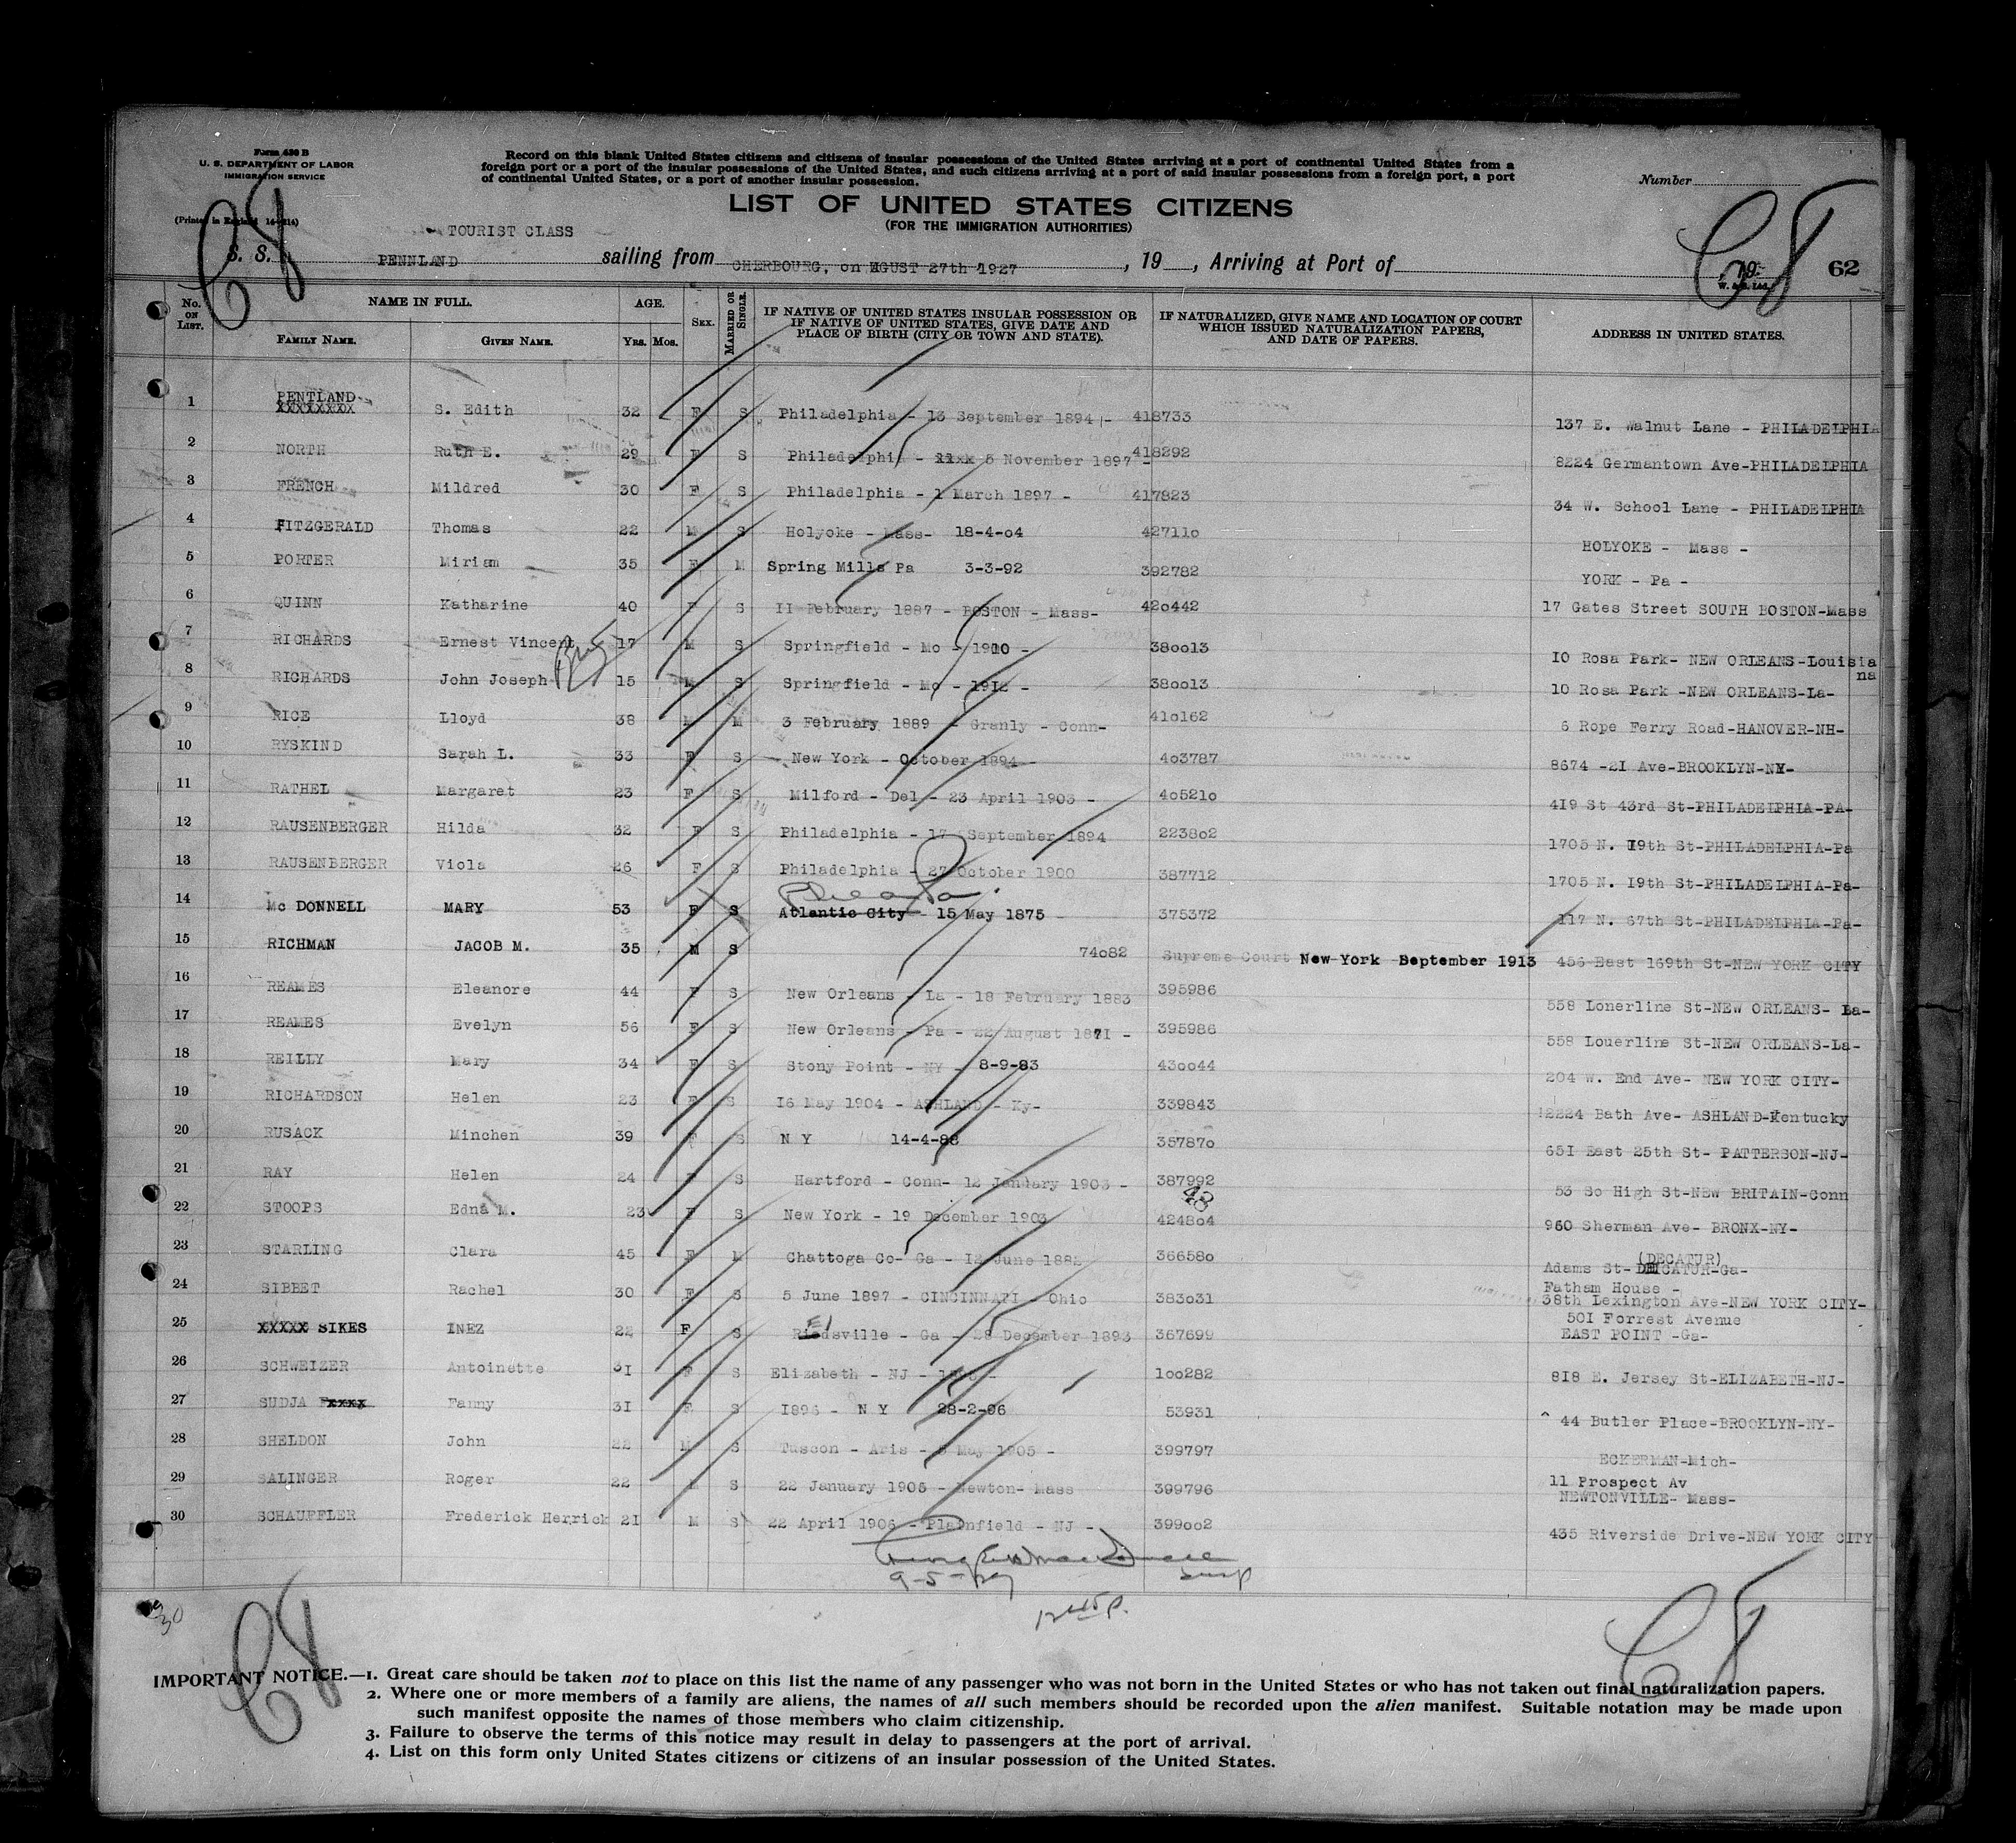 Form 630 B
U. S. DEPARTMENT OF LABOR
IMMIGRATION SERVICE
Record on this blank United States citizens and citizens of insular possessions of the United States arriving at a port of continental United States from a
foreign port or a port of the insular possessions of the United States, and such citizens arriving at a port of said insular possessions from a foreign port, a port
of continental United States, or a port of another insular possession.
Number
LIST OF UNITED STATES CITIZENS
(FOR THE IMMIGRATION AUTHORITIES)
(Printed in England
TOURIST CLASS
S. S. PENNLAND sailing from CHERBOURG, on GUST 27th 1927, 19 , Arriving at Port of , 19 62
C8 C8
No. ON LIST. NAME IN FULL. AGE. SEX. MARRIED OR SINGLE. IF NATIVE OF UNITED STATES INSULAR POSSESSION OR IF NATIVE OF UNITED STATES, GIVE DATE AND PLACE OF BIRTH (CITY OR TOWN AND STATE). IF NATURALIZED, GIVE NAME AND LOCATION OF COURT WHICH ISSUED NATURALIZATION PAPERS, AND DATE OF PAPERS. ADDRESS IN UNITED STATES.
FAMILY NAME. GIVEN NAME. YRS. MOS.
1 PENTLAND XXXXXXXX S. Edith 32 F S Philadelphia - 13 September 1894 - 418733 137 E. Walnut Lane - PHILADELPHIA
2 NORTH Ruth E. 29 F S Philadelphia - xxxx 5 November 1897 - 418292 8224 Germantown Ave-PHILADELPHIA
3 FRENCH Mildred 30 F S Philadelphia - 1 March 1897 - 417823 34 W. School Lane - PHILADELPHIA
4 FITZGERALD Thomas 22 M S Holyoke - Mass- 18-4-04 427110 HOLYOKE - Mass -
5 PORTER Miriam 35 F M Spring Mills Pa 3-3-92 392782 YORK - Pa -
6 QUINN Katharine 40 F S II February 1887 - BOSTON - Mass- 420442 17 Gates Street SOUTH BOSTON-Mass
7 RICHARDS Ernest Vincent 17 M S Springfield - Mo - 1910 - 380013 IO Rosa Park- NEW ORLEANS-Louisia
na
8 RICHARDS John Joseph 15 M S Springfield - Mo - 1912 - 380013 10 Rosa Park -NEW ORLEANS-La-
9 RICE Lloyd 38 M M 3 February 1889 - Granly - Conn- 410162 6 Rope Ferry Road-HANOVER-NH-
10 RYSKIND Sarah L. 33 F S New York - October 1894 - 403787 8674 -2I Ave-BROOKLYN-NY-
11 RATHEL Margaret 23 F S Milford - Del - 23 April 1903 - 405210 4I9 St 43rd St-PHILADELPHIA-PA-
12 RAUSENBERGER Hilda 32 F S Philadelphia - 17 September 1894 223802 1705 N. I9th St-PHILADELPHIA-Pa
13 RAUSENBERGER Viola 26 F S Philadelphia - 27 October 1900 387712 1705 N. I9th St-PHILADELPHIA-Pa-
14 Mc DONNELL MARY 53 F S Atlantic City - 15 May 1875 - 375372 117 N. 67th St-PHILADELPHIA-Pa-
15 RICHMAN JACOB M. 35 M S 74082 Supreme Court New York September 1913 456 East 169th St-NEW YORK CITY
16 REAMES Eleanore 44 F S New Orleans - La - 18 February 1883 395986 558 Lonerline St-NEW ORLEANS- La-
17 REAMES Evelyn 56 F S New Orleans - Pa - 22 August 187I - 395986 558 Louerline St-NEW ORLEANS-La-
18 REILLY Mary 34 F S Stony Point - NY - 8-9-93 430044 204 W. End Ave- NEW YORK CITY-
19 RICHARDSON Helen 23 F S I6 May 1904 - ASHLAND - Ky- 339843 2224 Bath Ave- ASHLAND-Kentucky
20 RUSACK Minchen 39 F S N Y 14-4-88 357870 65I East 25th St- PATTERSON-NJ-
21 RAY Helen 24 F S Hartford - Conn- 12 January 1903 - 387992 53 So High St-NEW BRITAIN-Conn
22 STOOPS Edna M. 23 F S New York - 19 December 1903 424804 960 Sherman Ave- BRONX-NY-
23 STARLING Clara 45 F M Chattoga Co- Ga - 12 June 1882 366580 (DECATUR)
Adams St- DECATUR-Ga-
24 SIBBET Rachel 30 F S 5 June 1897 - CINCINNATI - Ohio 383031 Fatham House -
38th Lexington Ave-NEW YORK CITY-
25 XXXXX SIKES INEZ 22 F S Riedsville - Ga - 28 December 1893 367699 50I Forrest Avenue
EAST POINT -Ga-
26 SCHWEIZER Antoinette 3I F S Elizabeth - NJ - 100282 8I8 E. Jersey St-ELIZABETH-NJ-
27 SUDJA xxxx Fanny 3I F S I896 - N Y 28-2-96 53931 44 Butler Place-BROOKLYN-NY-
28 SHELDON John 22 M S Tuscon - Aris - 5 May 1905 - 399797 ECKERMAN-Mich-
29 SALINGER Roger 22 M S 22 January 1905 - Newton- Mass 399796 11 Prospect Av
NEWTONVILLE- Mass-
30 SCHAUFFLER Frederick Herrick 2I M S 22 April 1906 - Plainfield - NJ - 399002 435 Riverside Drive-NEW YORK CITY
9-5-27
30
C8 C8
IMPORTANT NOTICE.—1. Great care should be taken not to place on this list the name of any passenger who was not born in the United States or who has not taken out final naturalization papers.
2. Where one or more members of a family are aliens, the names of all such members should be recorded upon the alien manifest. Suitable notation may be made upon
such manifest opposite the names of those members who claim citizenship.
3. Failure to observe the terms of this notice may result in delay to passengers at the port of arrival.
4. List on this form only United States citizens or citizens of an insular possession of the United States.